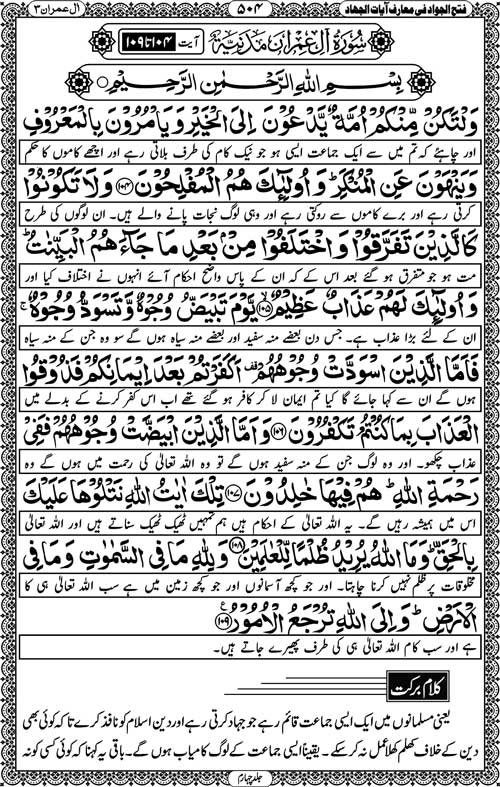 فتح الجواد فی معارف آیات الجہاد
۵۰۴
آل عمران ۳
سُوْرَۃُ اٰلِ عِمْرَانَ مَدَنِیَّۃٌ آیت ۱۰۴ تا ۱۰۹
بِسْمِ اللّٰهِ الرَّحْمٰنِ الرَّحِیْمِ
وَلْتَكُنْ مِّنْكُمْ اُمَّةٌ یَّدْعُوْنَ اِلَی الْخَیْرِ وَیَاْمُرُوْنَ بِالْمَعْرُوْفِ
اور چاہئے کہ تم میں سے ایک جماعت ایسی ہو جو نیک کام کی طرف بلاتی رہے اور اچھے کاموں کا حکم
وَیَنْهَوْنَ عَنِ الْمُنْكَرِ ؕ وَ اُولٰٓىِٕكَ هُمُ الْمُفْلِحُوْنَ ﴿۱۰۴﴾ وَلَا تَكُوْنُوْا
کرتی رہے اور برے کاموں سے روکتی رہے اور وہی لوگ نجات پانے والے ہیں۔ ان لوگوں کی طرح
كَالَّذِیْنَ تَفَرَّقُوْا وَ اخْتَلَفُوْا مِنْۢ بَعْدِ مَا جَآءَهُمُ الْبَیِّنٰتُ ؕ
مت ہو جو متفرق ہو گئے بعد اس کے کہ ان کے پاس واضح احکام آئے انہوں نے اختلاف کیا اور
وَ اُولٰٓىِٕكَ لَهُمْ عَذَابٌ عَظِیْمٌ ﴿۱۰۵﴾ یَّوْمَ تَبْیَضُّ وُجُوْهٌ وَّتَسْوَدُّ وُجُوْهٌ ۚ
ان کے لئے بڑا عذاب ہے۔ جس دن بعضے منہ سفید اور بعضے منہ سیاہ ہوں گے سو وہ جن کے منہ سیاہ
فَاَمَّا الَّذِیْنَ اسْوَدَّتْ وُجُوْهُهُمْ اَكَفَرْتُمْ بَعْدَ اِیْمَانِكُمْ فَذُوْقُوا
ہوں گے ان سے کہا جائے گا کیا تم ایمان لا کر کافر ہو گئے تھے اب اس کفر کرنے کے بدلے میں
الْعَذَابَ بِمَا كُنْتُمْ تَكْفُرُوْنَ ﴿۱۰۶﴾ وَ اَمَّا الَّذِیْنَ ابْیَضَّتْ وُجُوْهُهُمْ فَفِیْ
عذاب چکھو۔ اور وہ لوگ جن کے منہ سفید ہوں گے تو وہ اللہ تعالیٰ کی رحمت میں ہوں گے وہ
رَحْمَةِ اللّٰهِ ؕ هُمْ فِیْهَا خٰلِدُوْنَ ﴿۱۰۷﴾ تِلْكَ اٰیٰتُ اللّٰهِ نَتْلُوْهَا عَلَیْكَ
اس میں ہمیشہ رہیں گے۔ یہ اللہ تعالیٰ کے احکام ہیں ہم تمہیں ٹھیک ٹھیک سناتے ہیں اور اللہ تعالیٰ
بِالْحَقِّ ؕ وَمَا اللّٰهُ یُرِیْدُ ظُلْمًا لِّلْعٰلَمِیْنَ ﴿۱۰۸﴾ وَلِلّٰهِ مَا فِی السَّمٰوٰتِ وَمَا فِی
مخلوقات پر ظلم نہیں کرنا چاہتا۔ اور جو کچھ آسمانوں اور جو کچھ زمین میں ہے سب اللہ تعالیٰ ہی کا
الْاَرْضِ ؕ وَ اِلَی اللّٰهِ تُرْجَعُ الْاُمُوْرُ ﴿۱۰۹﴾
ہے اور سب کام اللہ تعالیٰ ہی کی طرف پھیرے جاتے ہیں۔
کلام برکت
یعنی مسلمانوں میں ایک ایسی جماعت قائم رہے جو جہاد کرتی رہے اور دین اسلام کو نافذ کرے تا کہ کوئی بھی
دین کے خلاف کھلم کھلا عمل نہ کر سکے۔ یقیناً ایسی جماعت کے لوگ کامیاب ہوں گے۔ باقی یہ کہنا کہ کوئی کسی کو نہ
جلد چہارم